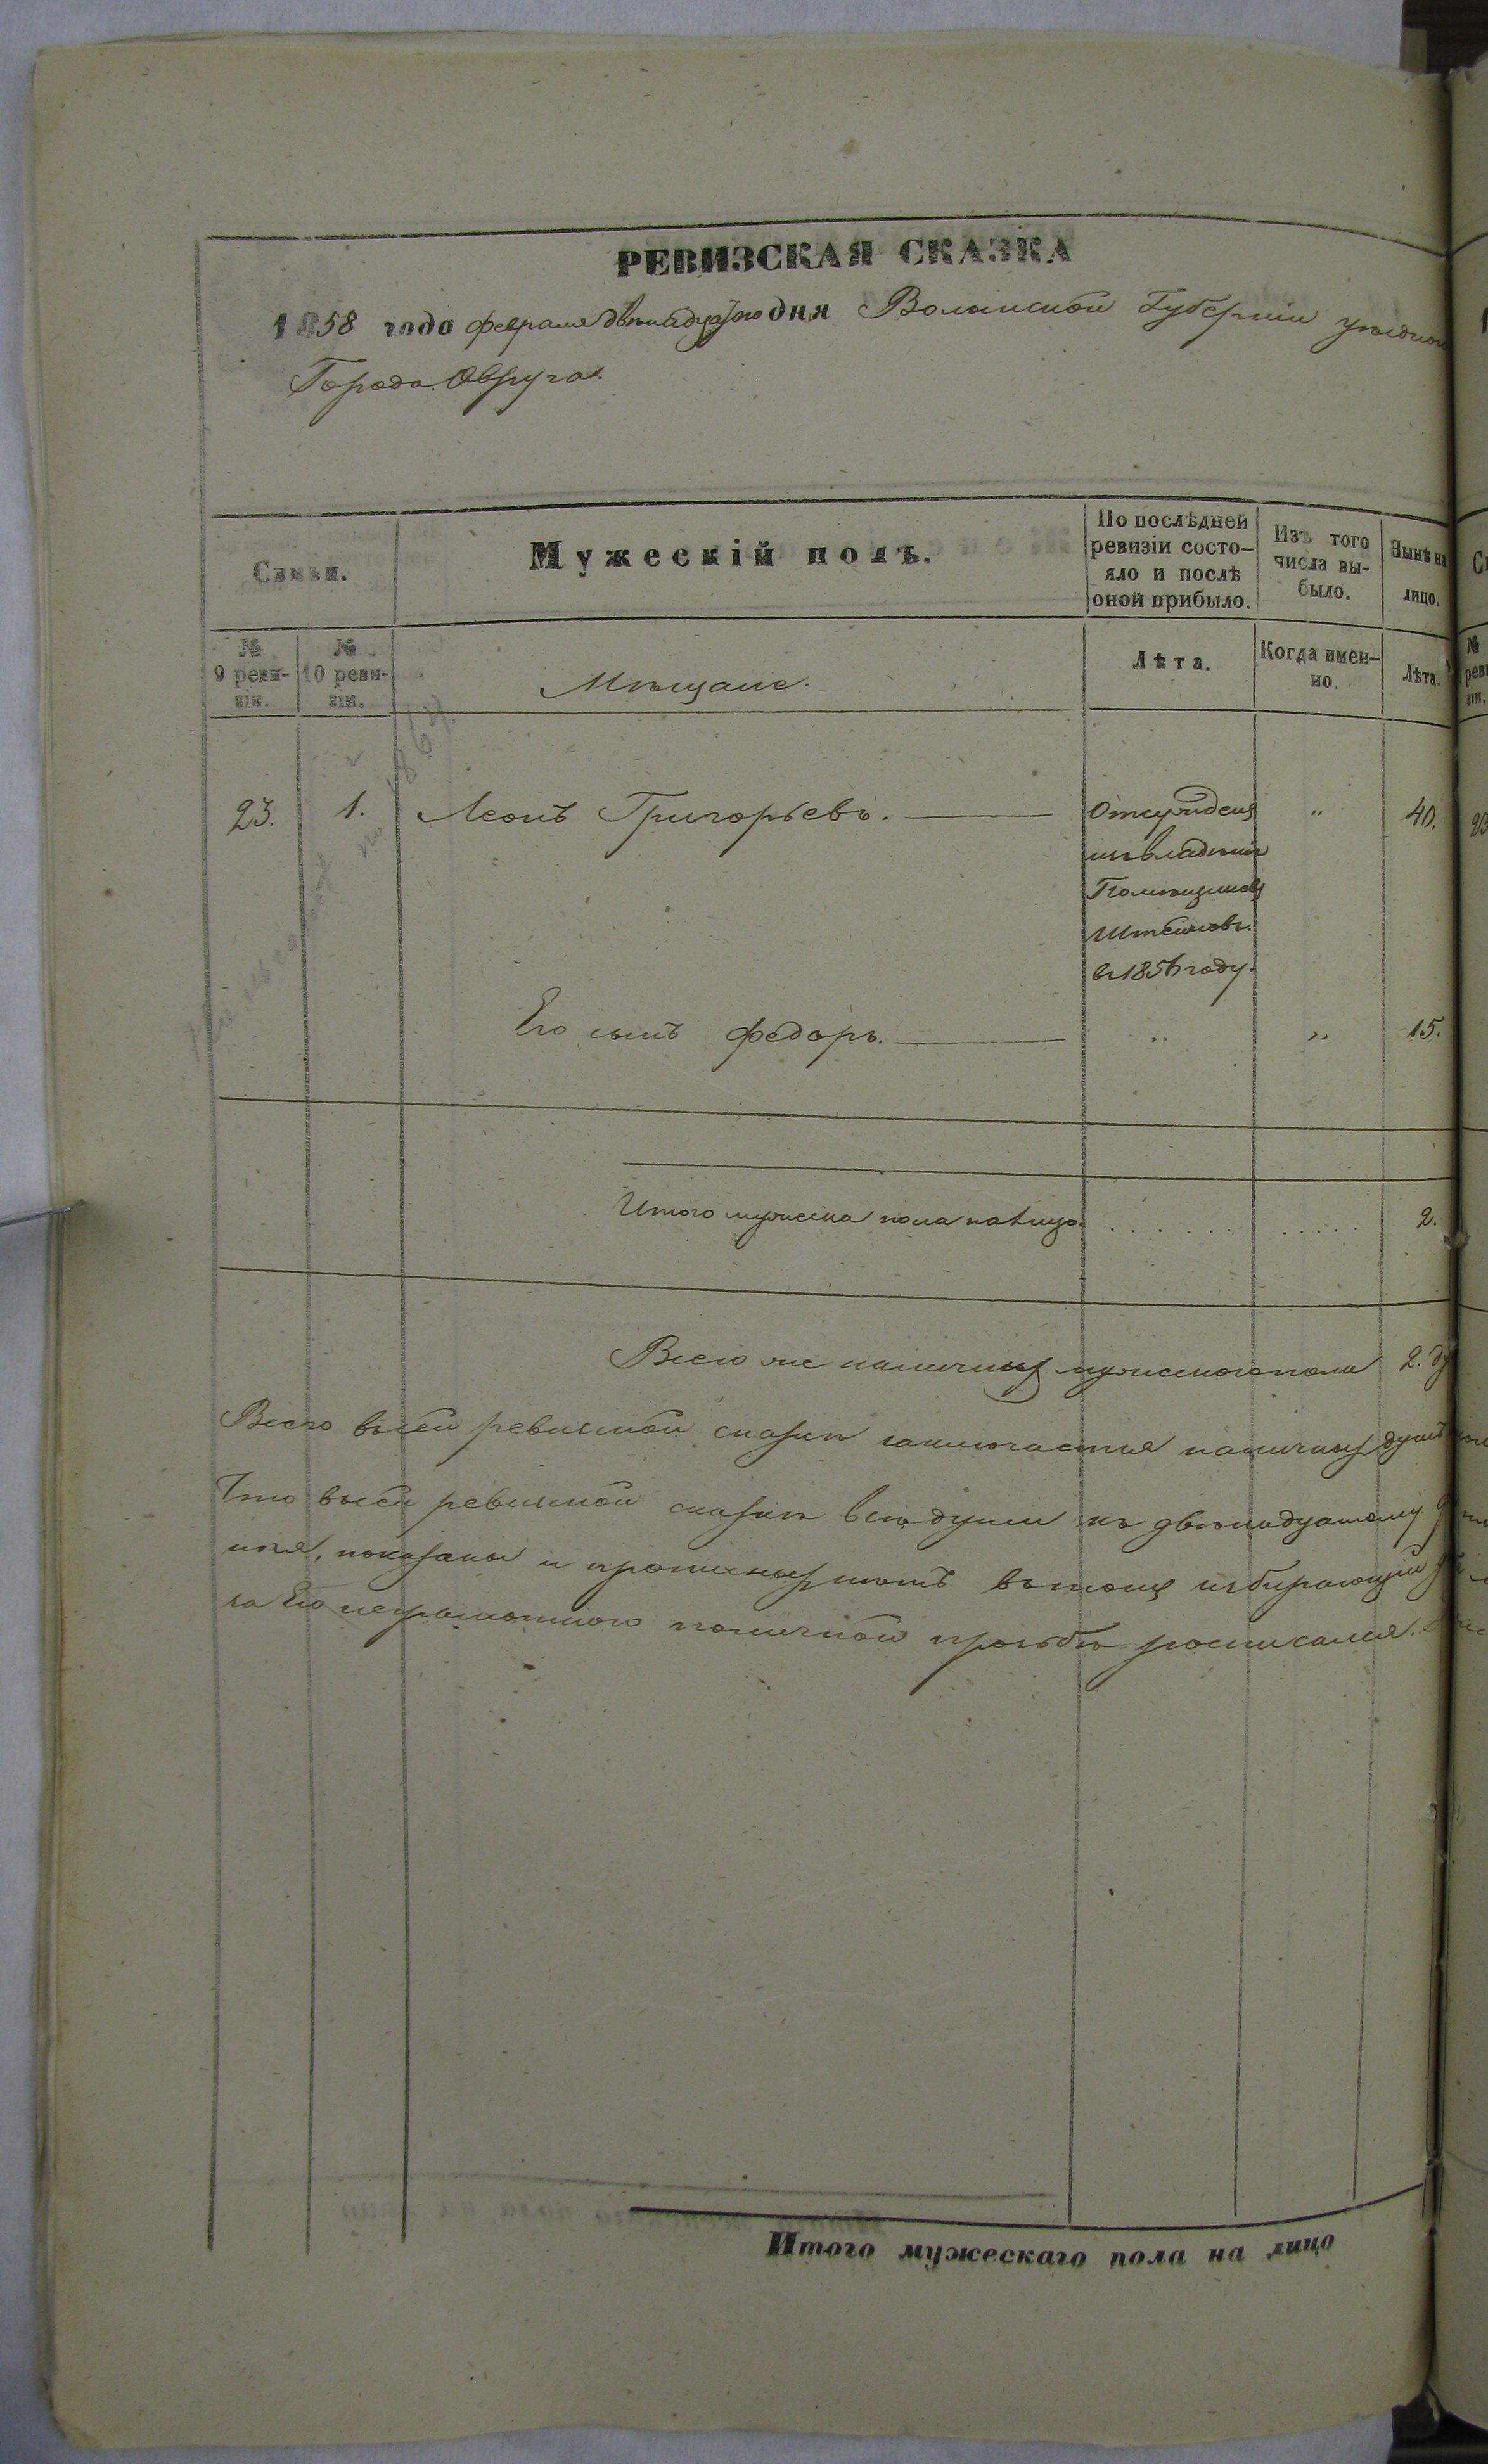 РЕВИЗСКАЯ СКАЗКА
1858 года февраля двѣнадцатого дня Волынской Губерніи уѣздного
Города Овруча.
Мужескій полъ.
По послѣдней ревизіи состо-
яло и послѣ
оной прибыло.
Изъ того
числа вы-
было.
Нынѣ на
лицо.
№
9 реви-
зіи.
№
10 реви-
зіи.
Мѣщане.
Лѣта.
Когда имен-
но.
Лѣта.
23.
1.
Леонъ Григорьевъ.
Отсужденъ
изъ владѣнія
Помѣщиковъ
въ 1856 году.
"
40.
Его сынъ Федоръ.
"
"
15.
Итого мужеска пола налицо
2.
Всего же наличныхъ мужеского пола 2.
Всего въ сей ревизской сказкѣ заключается наличныхъ душъ
Что въ сей ревизской сказкѣ всѣ души къ двѣнадцатому
показаны и прописныхъ нѣтъ въ томъ
за Его неграмотного по личной прозьбѣ росписался.
Итого мужескаго пола на лицо